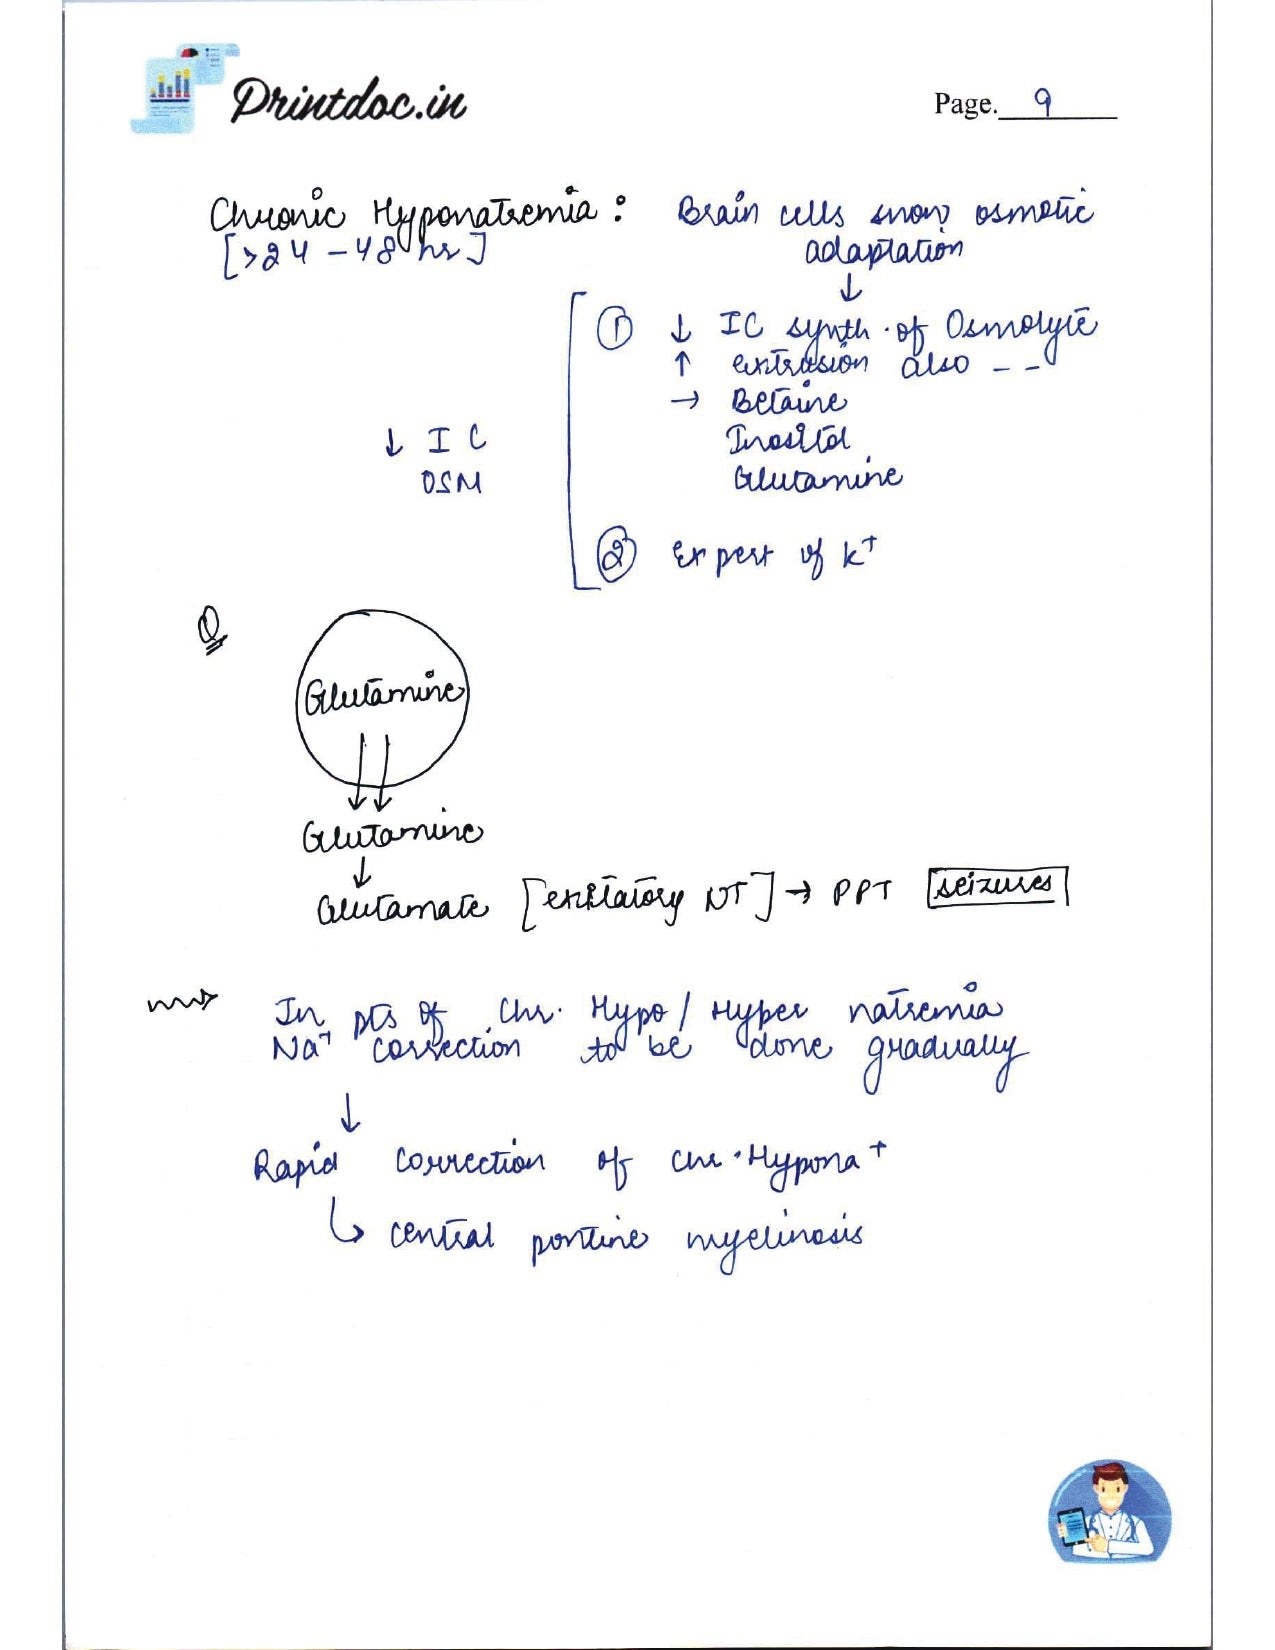 Printdoc.in
Page. 9
Chronic Hyponatremia : Brain cells show osmotic
[>24 - 48 hr] adaptation
↓
① ↓ IC synth. of Osmolyte
↑ extrusion also - -
→ Betaine
↓ IC Inositol
OSM Glutamine
② Export of K+
Q
Glutamine
Glutamine
↓
Glutamate [excitatory NT] → PPT seizures
In pts of Chr. Hypo / Hyper natremia
Na+ correction to be done gradually
↓
Rapid correction of chr. Hypona+
↳ central pontine myelinosis